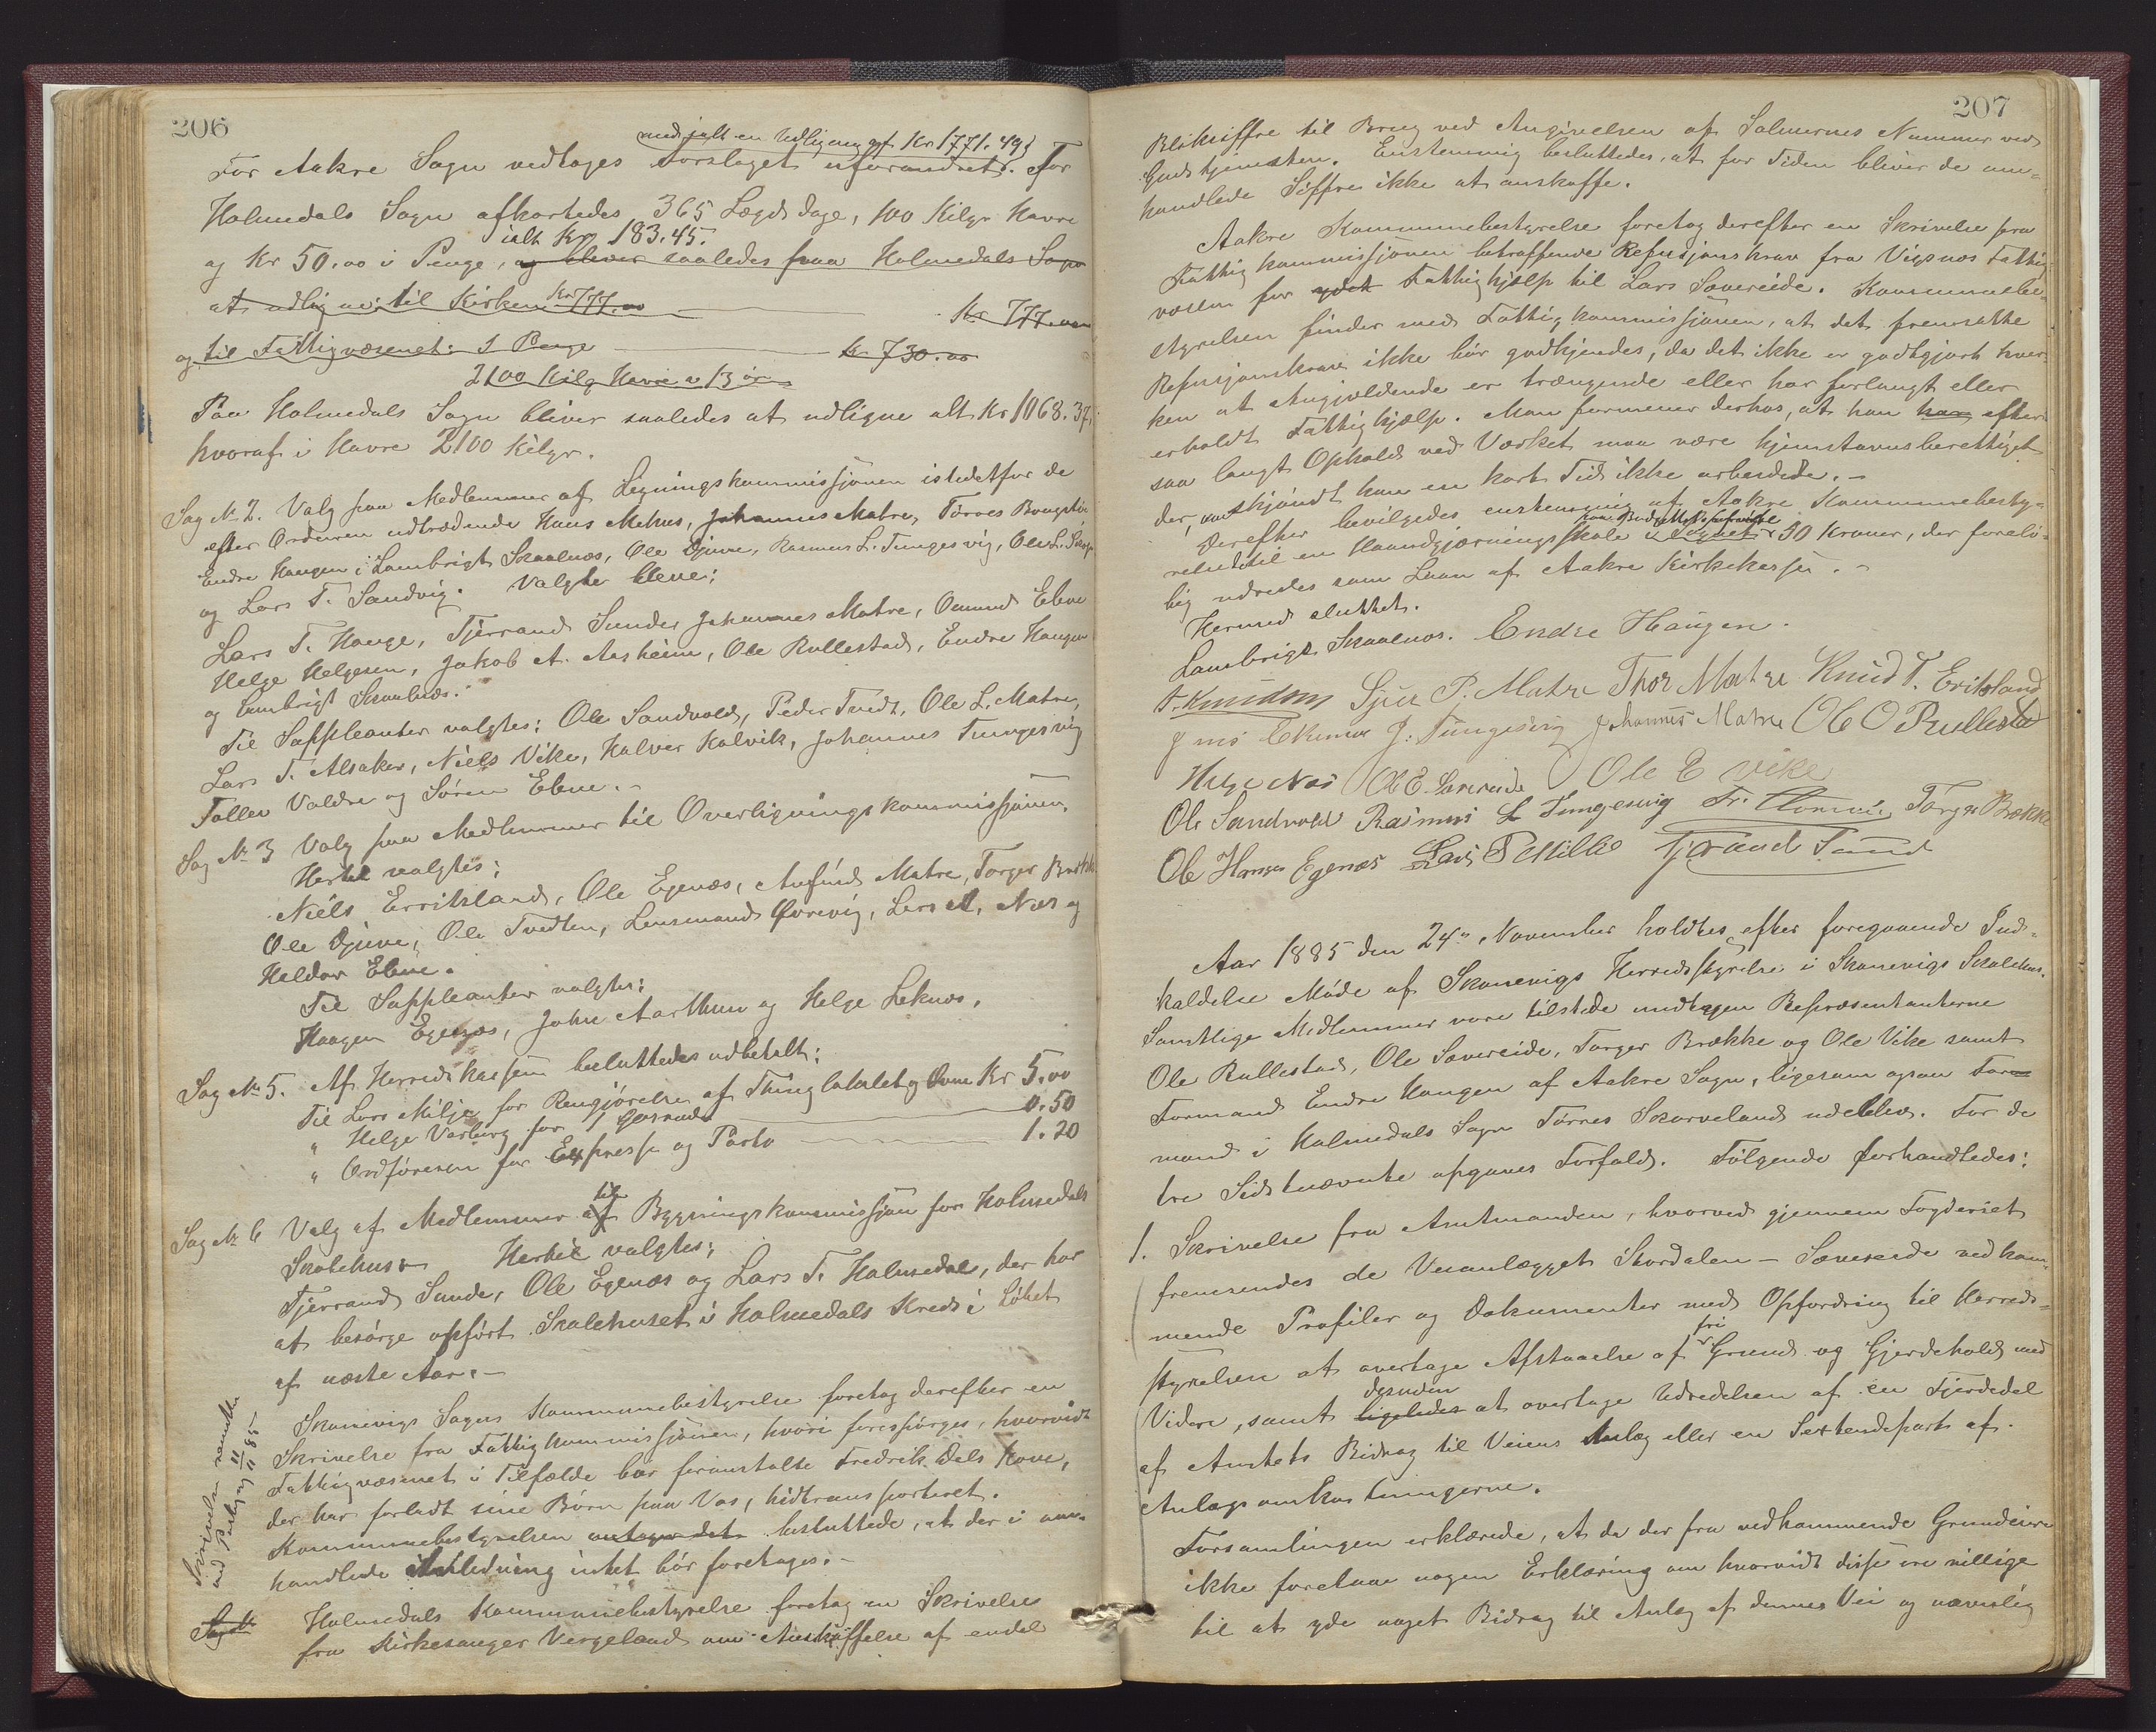 206
med ialt en Udligning af Kr 1771.49,
For Aakre Sogn vedtages Forslaget uforandret. For
Holmedals Sogn afkortedes 365 Lægdsdage, 100 Kilgr Havre
ialt Kr 183.45.
og Kr 50.00 i Penge, og bliver saaledes paa Holmedals Sogn
at udligne: til Kirken Kr 777.00 Kr 777.00
og til Fattigvæsenet: I Penge Kr 730.00
2100 Kilg Havre a 13 øre
Paa Holmedals Sogn bliver saaledes at udligne alt Kr 1068.37,
hvoraf i Havre 2100 Kilgr.
Sag No 2. Valg paa Medlemmer af Ligningskommissjonen istedetfor de
efter Ordenen udtrædende Hans Mehus, Johannes Matre, Torres
Endre Haugen i Lambrigt Skaalnæs, Ole Djuve, Rasmus L. Tungesvig, Ole L.
og Lars T. Sandvig. Valgte bleve:
Lars T. Hauge, Tjerrand Sunder Johannes Matre, Omund Ebne
Helge Helgesen, Jakob A. Aasheim, Ole Rullestad, Endre Haugen
og Lambrigt Skaalnæs.
Til Suppleanter valgtes: Ole Sandvold, Peder Tvedt, Ole L. Matre,
Lars T. Alsaker, Niels Vike, Halvor Kalvik, Johannes Tungesvig
Tollev Valdre og Søren Ebne. -
Sag No 3 Valg paa Medlemmer til Overligningskommissjonen.
Hertil valgtes:
Niels Erriksland, Ole Egenæs, Anfind Matre, Torger Brække
Ole Djuve, Ole Tvedten, Lensmand Øvrevig, Lars A. Næs og
Haldor Ebne.
Til Suppleanter valgtes:
Haagen Egenæs, John Aarthun og Helge Leknes.
Sag No 5. Af Herredskassen besluttedes udbetalt:
Til Lars Milje for Rengjørelse af Thinglokalet og Ovne Kr 5.00
" Helge Varberg for 1 0.50
" Ordføreren for Expresse og Porto 1.20
til
Sag No 6 Valg af Medlemmer af Bygningskommissjon for Holmedals
Skolehus. Hertil valgtes:
Tjerrand Sunde, Ole Egenæs og Lars T. Holmedal, der har
at besørge opført Skolehuset i Holmedals Kreds i Løbet
af næste Aar. -
Skonevigs Sogns Kommunebestyrelse foretog derefter en
Skrivelse fra Fattigkommissjonen, hvori forespørges, hvorvidt
Fattigvæsenet i Tilfælde bør foranstalte Fredrik Dals Kone,
der har forladt sine Børn paa Vos, hidtransporteret.
Kommunebestyrelsen antager det besluttede, at der i om-
handlede Anledning intet bør foretages. -
Skrivelsen
med 11/11 85
Sag No Holmedals Kommunebestyrelse foretog en Skrivelse
fra Kirkesanger Vergeland om Anskaffelse af endel
207
Blikziffre til Brug ved Angivelsen af Salmernes Nummer ved
Gudstjenesten. Enstemmig besluttedes, at for Tiden bliver de om-
handlede Siffre ikke at anskaffe.
Aakre Kommunebestyrelse foretog derefter en Skrivelse fra
Fattigkommissjonen betræffende Refusjonskrav fra Vigsnæs Fattig-
væsen for ydet Fattighjælp til Lars Sævereide. Kommunebe-
styrelsen finder med Fattigkommissjonen, at det fremsatte
Refusjonskrav ikke bør godkjendes, da det ikke er godtgjort hver-
ken at Angjældende er trængende eller har forlangt eller
erholdt Fattighjælp. Man formener derhos, at han har efter
saa langt Ophold ved Værket maa være hjemstavnsberettiget
der, omskjøndt han en kort Tid ikke arbeidede. -
Derefter bevilgedes enstemmig af Aakre Kommunebesty-
relse til en Haandgjerningsskole i Sognet 50 Kroner, der forelø-
big udredes som Laan af Aakre Kirkekasse. -
Hermed sluttet.
Lambrigt Skaalnæs. Endre Haugen.
T. Knudsen Sjur P. Matre Thor Matre Knud T. Eriksland
J. Tungesvig Johannes Matre Ole O Rullestad
Helge Næs Ole E. Sævereide Ole E Vike
Ole Sandvold Rasmus L Tungesvig Torger Brække
Ole Hansen Egenæs Lars P Millie Tjerand Sund
Aar 1885 den 24de November holdtes efter foregaaende Ind-
kaldelse Møde af Skonevigs Herredsstyrelse i Skonevigs Skolehus.
Samtlige Medlemmer vare tilstede undtagen Repræsentanterne
Ole Rullestad, Ole Sævereide, Torger Brække og Ole Vike samt
Formand Endre Haugen af Aakre Sogn, ligesom ogsaa For-
mand i Holmedals Sogn Torres Skarveland udeblev. For de
tre Sidstnævnte opgaves Forfald. Følgende forhandledes:
1. Skrivelse fra Amtmanden, hvorved gjennem Fogderiet
fremsendes de Veianlægget Skordalen - Sævereide vedkom-
mende Profiler og Dokumenter med Opfordring til Herreds-
fri
styrelsen at overtage Afstaaelse af Grund og Gjerdehold med
desuden
Videre, samt ligeledes at overtage Udredelsen af en Fjerdedel
af Amtets Bidrag til Veiens Anlæg eller en Sextendepart af
Anlægsomkostningerne.
Forsamlingen erklærede, at da der fra vedkommende Grundeiere
ikke foreligger nogen Erklæring om hvorvidt disse ere villige
til at yde noget Bidrag til Anlæg af denne Vei og navnlig